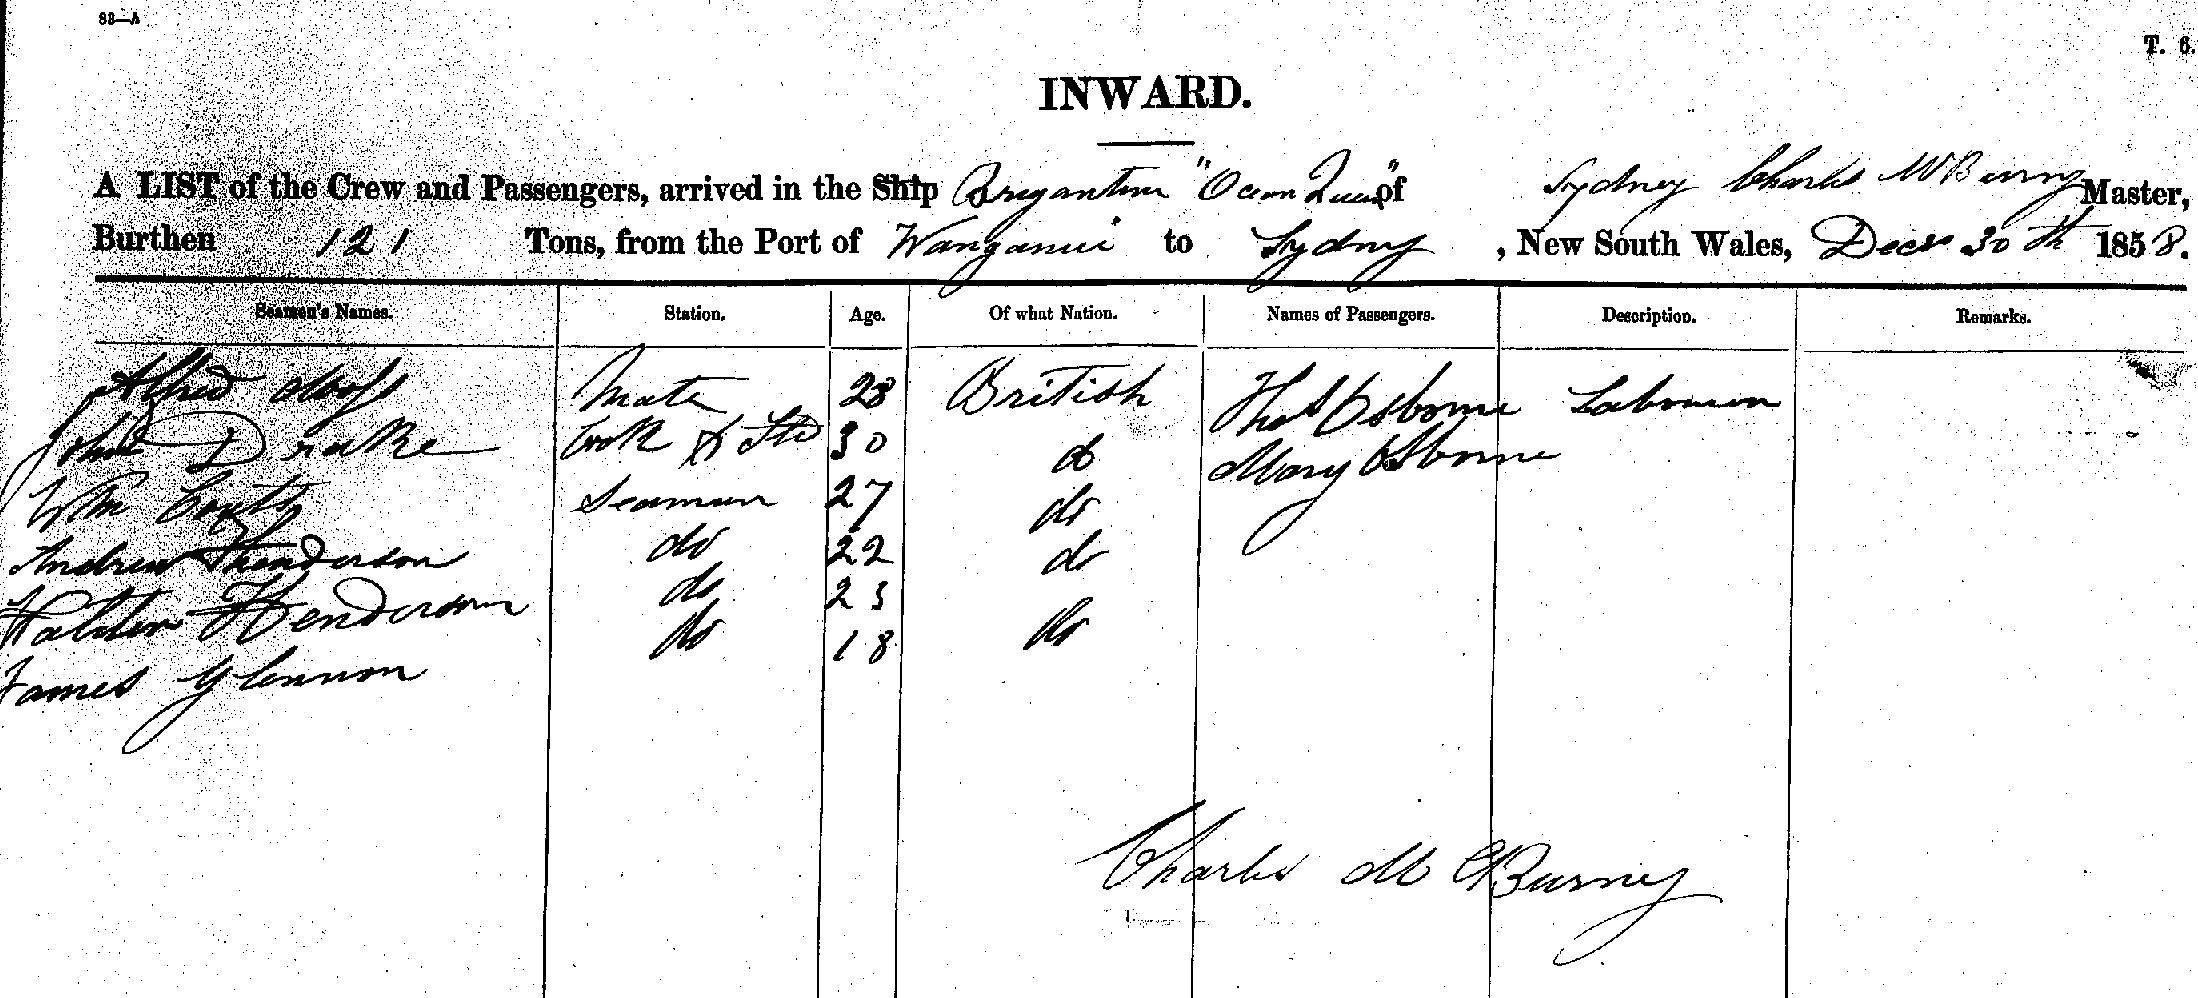 83—A
T. 6.
INWARD.
A LIST of the Crew and Passengers, arrived in the Ship Brigantine "Ocean Queen" of Sydney Charles McBurney Master,
Burthen 121 Tons, from the Port of Wanganui to Sydney, New South Wales, Decr 30th 1858.
Seamen's Names. Station. Age. Of what Nation. Names of Passengers. Description. Remarks.
Alfred Mate 28 British Thos Osborne Labourer
John Drake Cook & Std 30 do Mary Osborne
Wm Coutts Seaman 27 do
Andrew Henderson do 22 do
Henderson do 23
James Glennon do 18 do
Charles McBurney